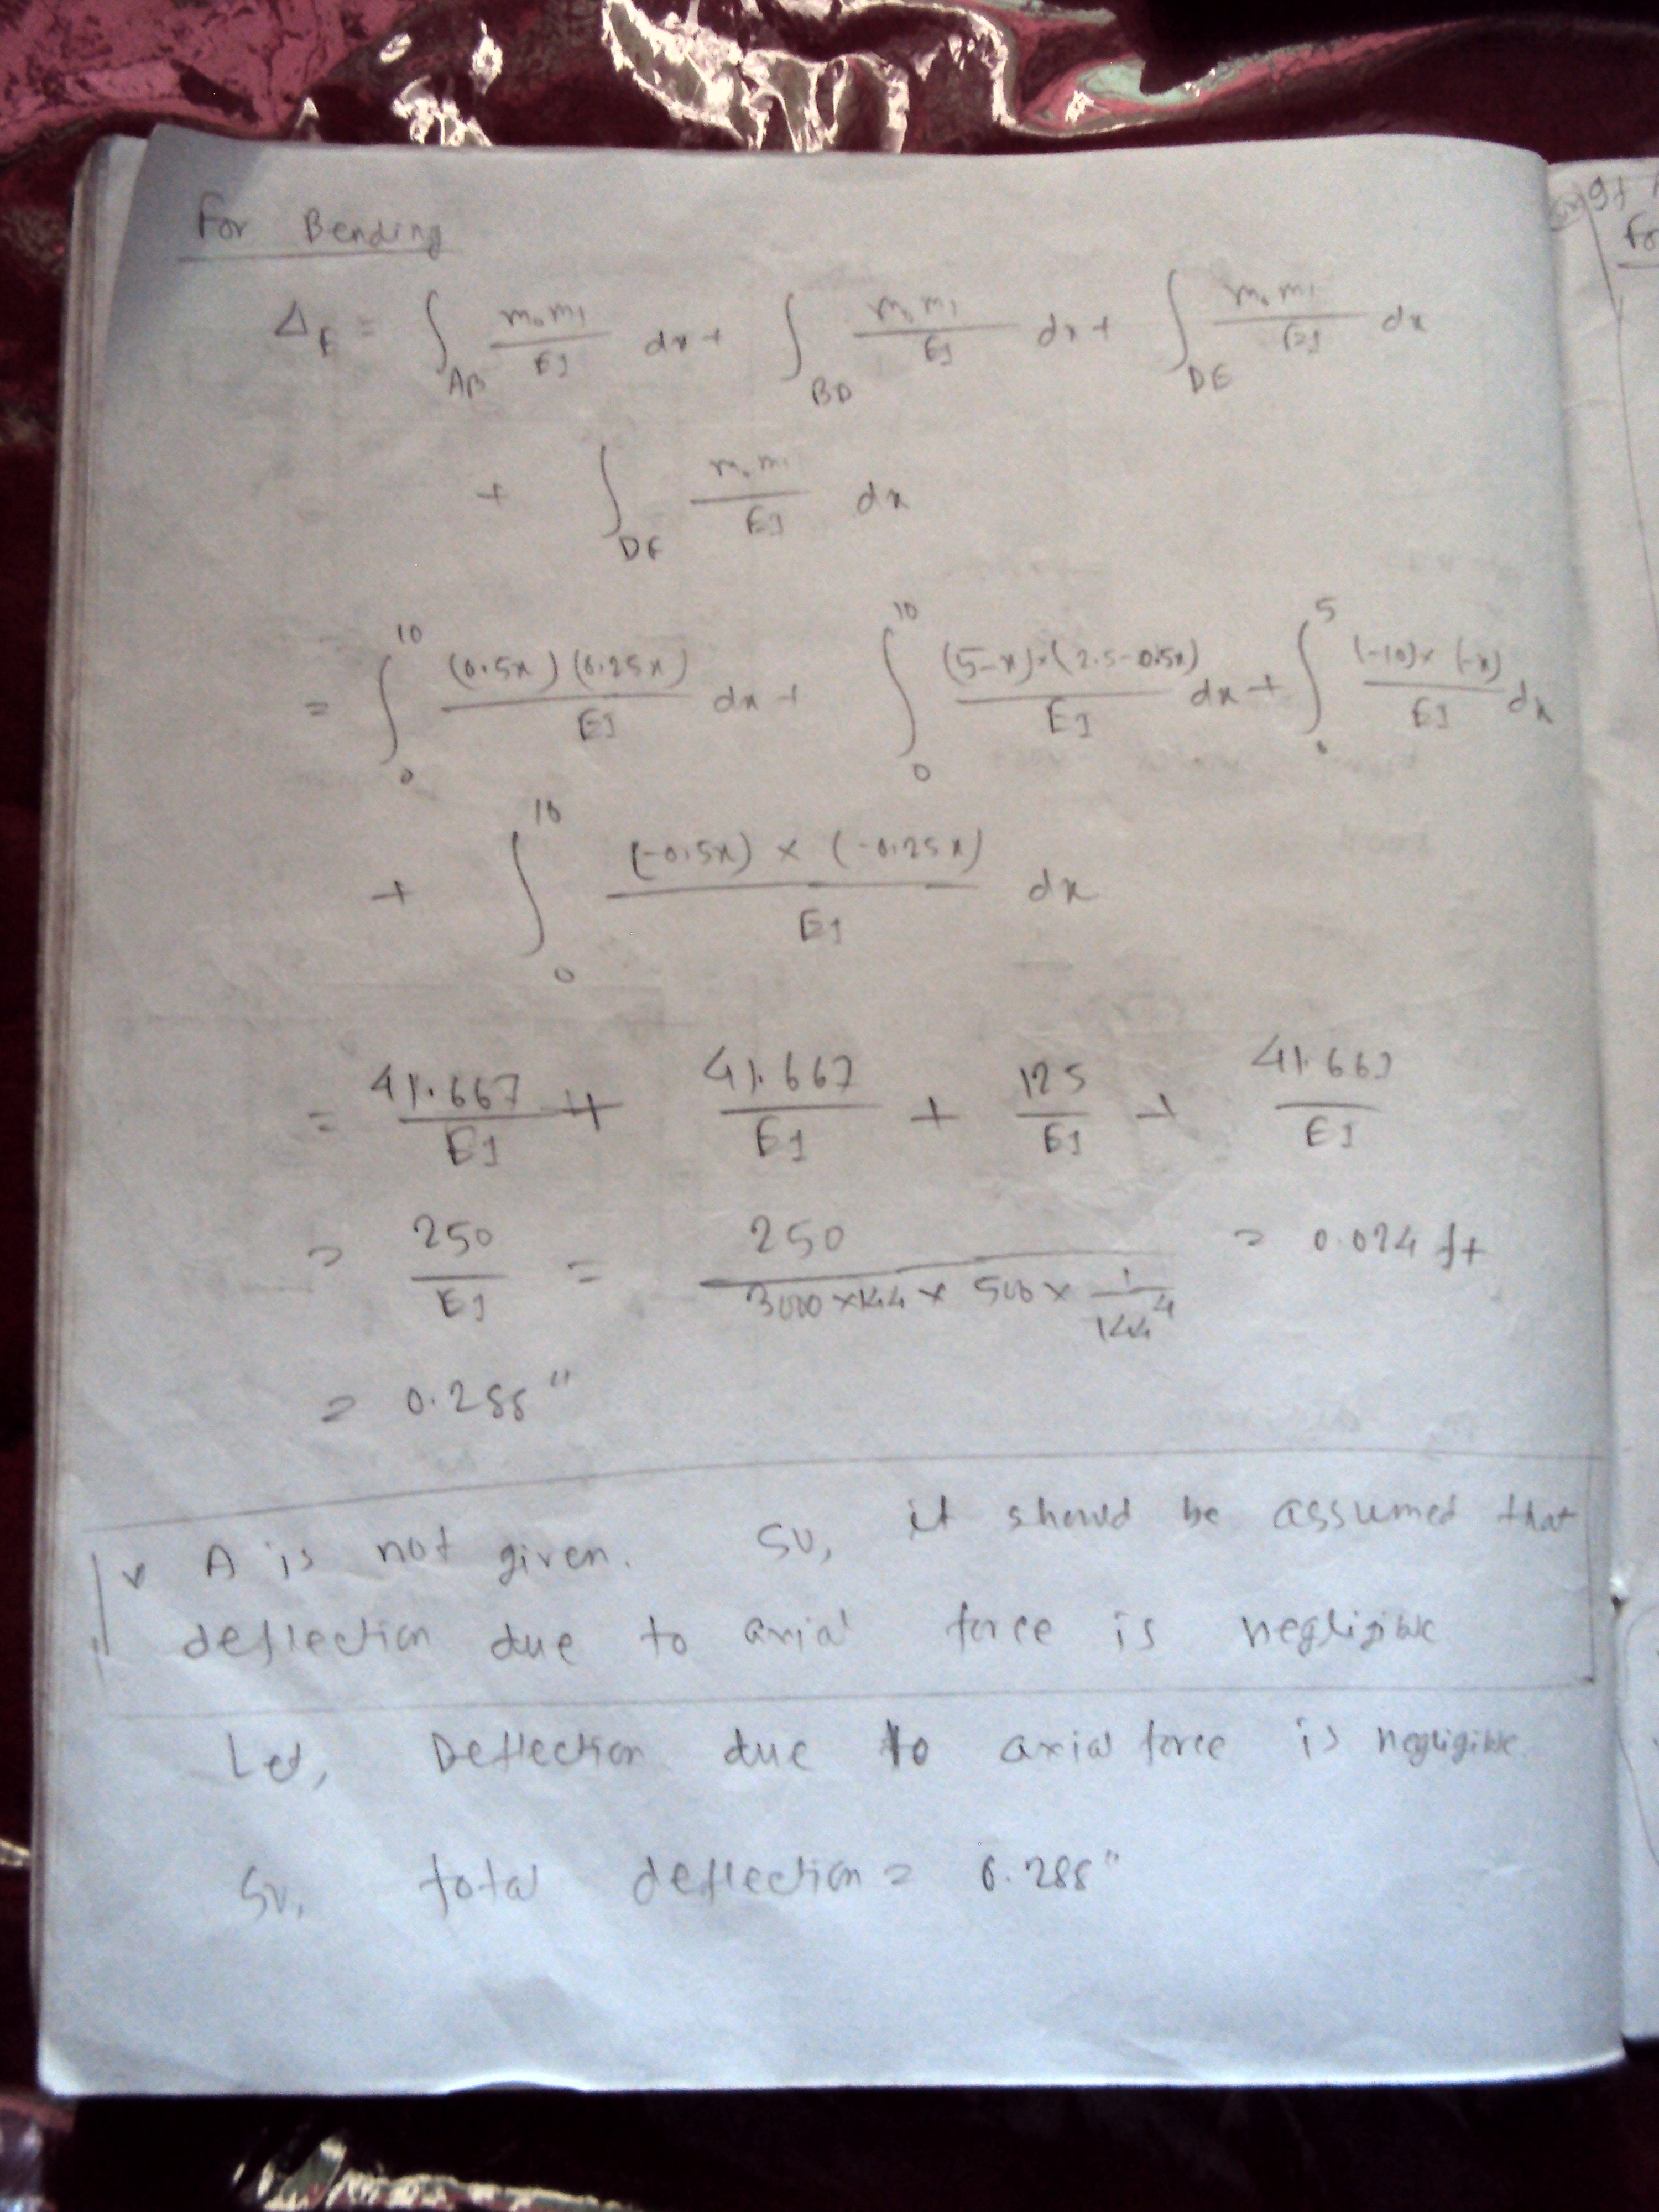 For Bending
Δ_F = ∫_AB m₀m₁/EI dx + ∫_BD m₀m₁/EI dx + ∫_DE m₀m₁/EI dx
+ ∫_DF m₀m₁/EI dx
= ∫_0^10 (0.5x)(0.25x)/EI dx + ∫_0^10 (5-x)×(2.5-0.5x)/EI dx + ∫_0^5 (-10)×(-x)/EI dx
+ ∫_0^10 (-0.5x) × (-0.25x)/EI dx
= 41.667/EI + 41.667/EI + 125/EI + 41.667/EI
= 250/EI = 250/(3000×144 × 500 × 1/144^4) = 0.024 ft
= 0.288"
A is not given. So, it should be assumed that
deflection due to axial force is negligible
Let, Deflection due to axial force is negligible.
So, total deflection = 0.288"